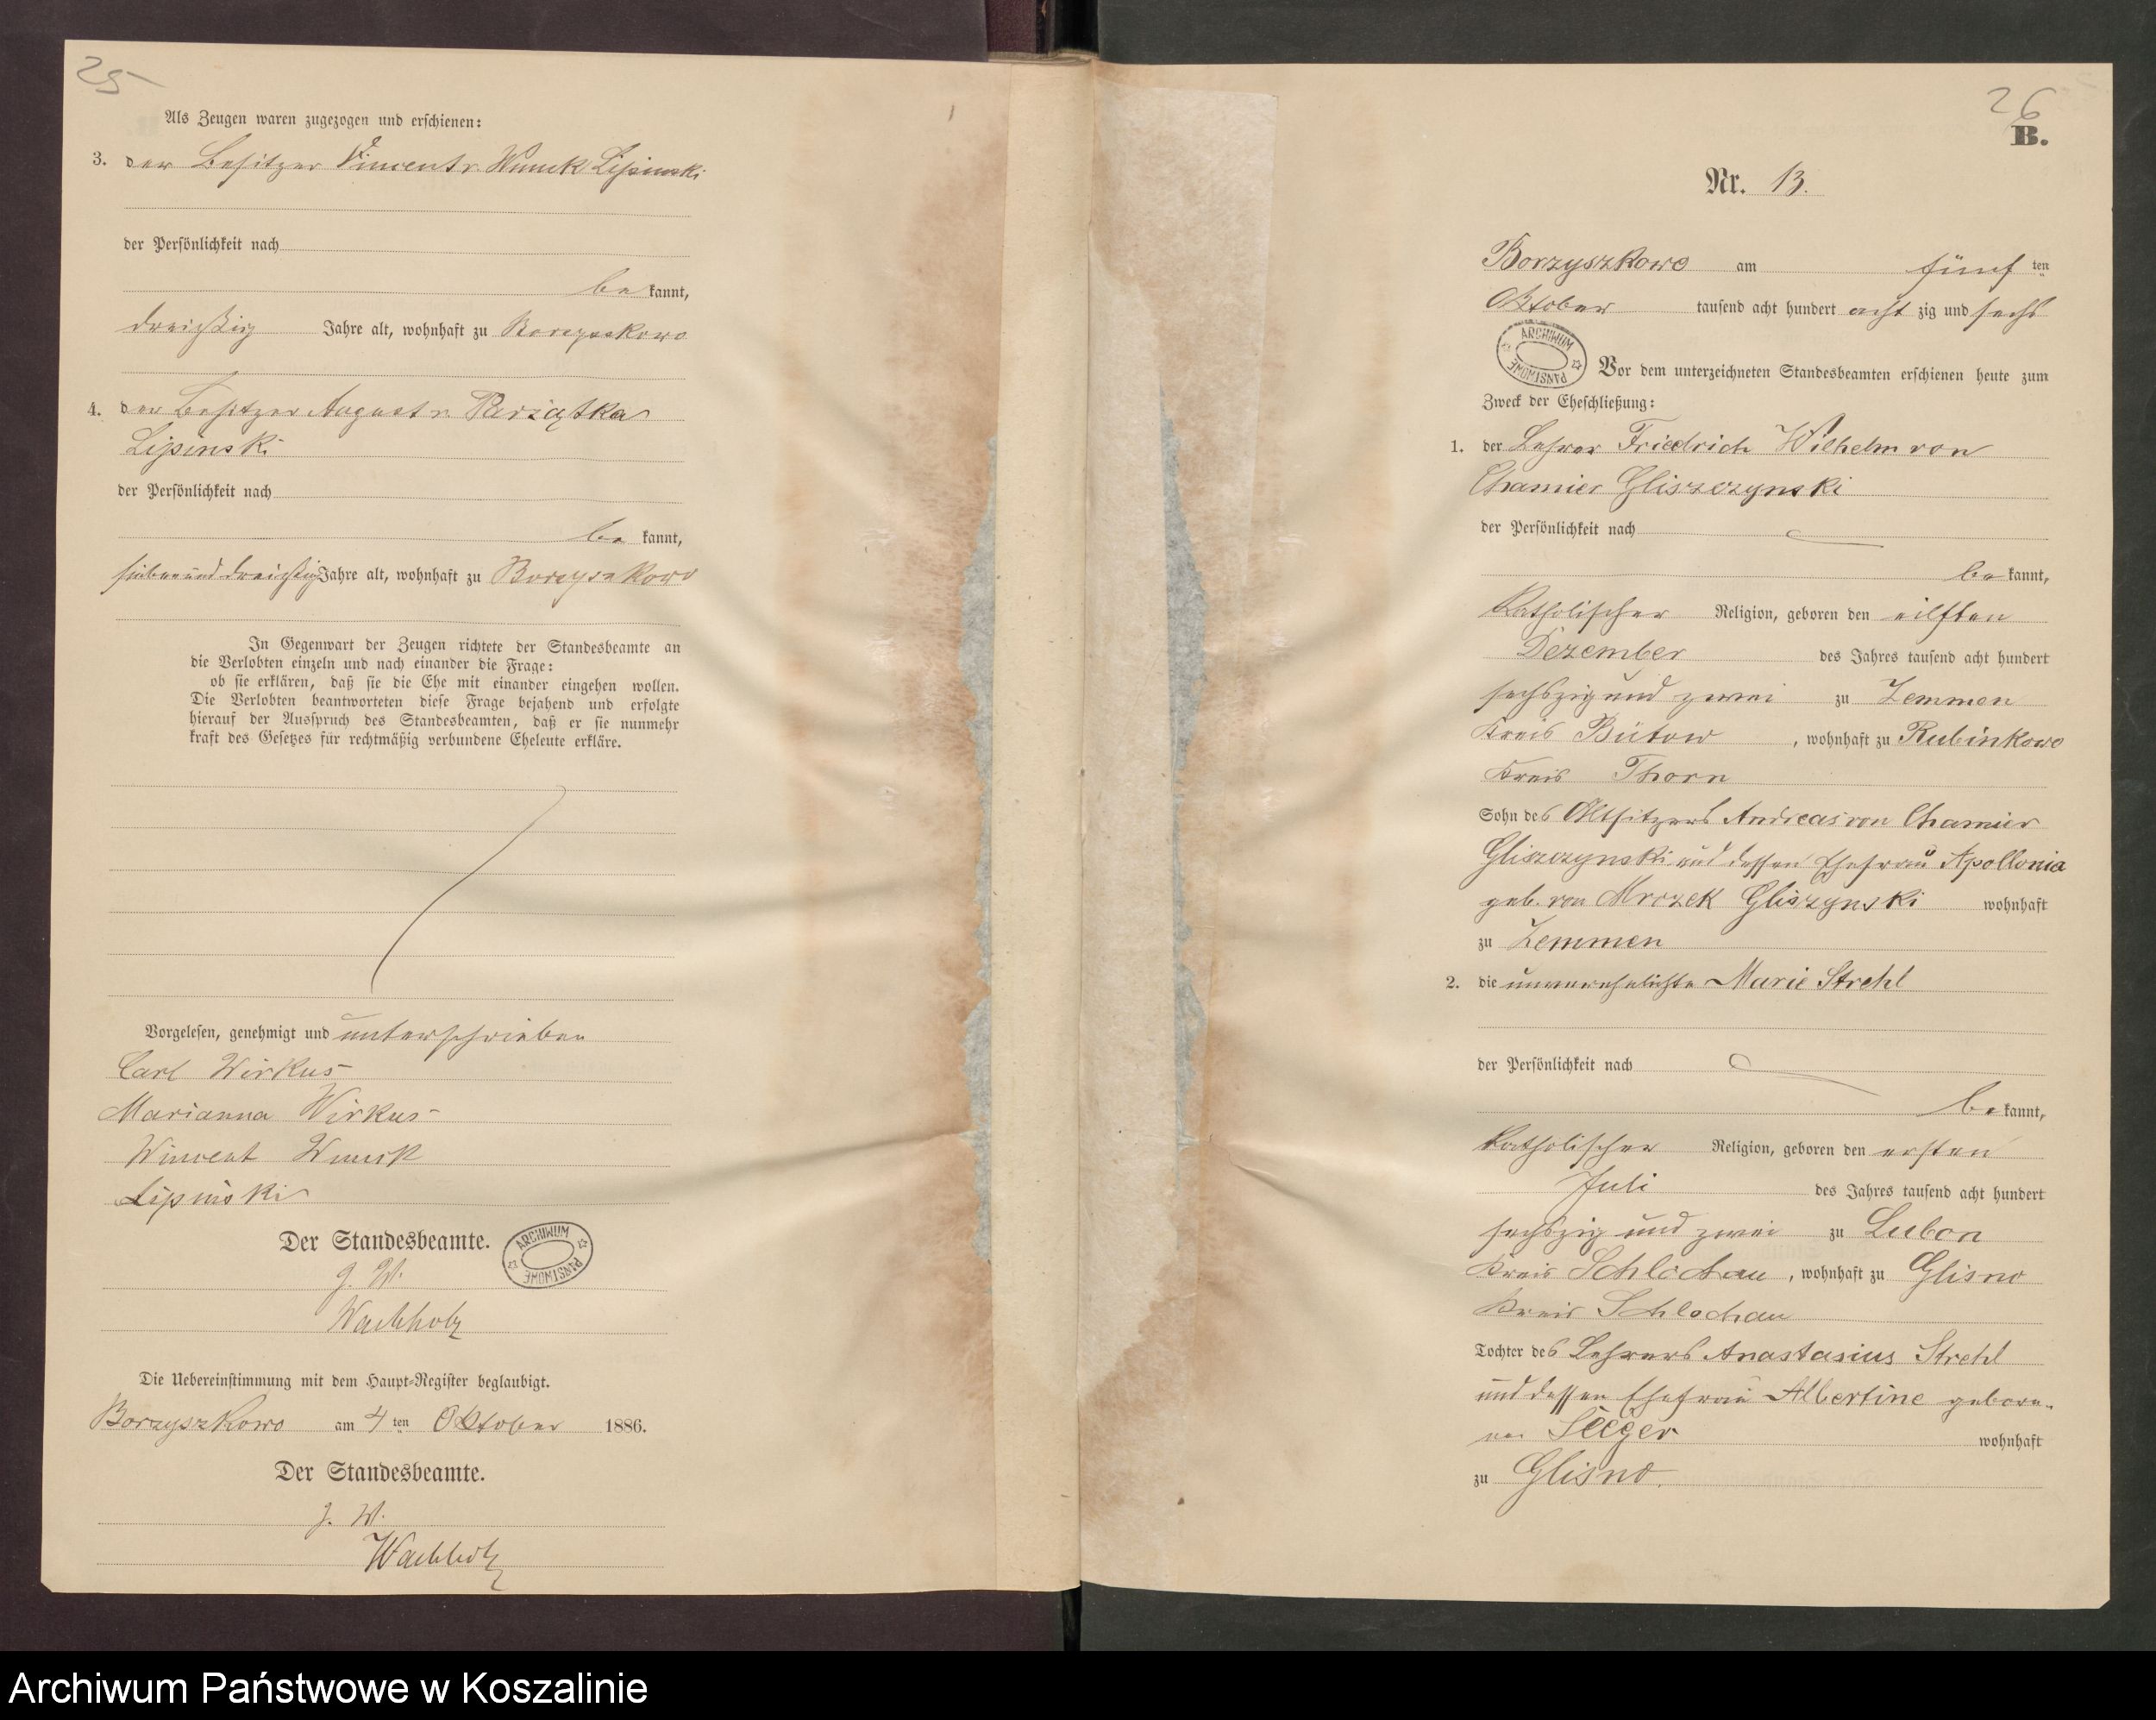 25
Als Zeugen waren zugezogen und erschienen:
3. der Besitzer Vincent v. Wnuck Lipinski
der Persönlichkeit nach
be kannt,
dreißig Jahre alt, wohnhaft zu Borzyszkowo
4. der Besitzer August v.
Lipinski
der Persönlichkeit nach
be kannt,
siebenunddreißig Jahre alt, wohnhaft zu Borzyszkowo
In Gegenwart der Zeugen richtete der Standesbeamte an
die Verlobten einzeln und nach einander die Frage:
ob sie erklären, daß sie die Ehe mit einander eingehen wollen.
Die Verlobten beantworteten diese Frage bejahend und erfolgte
hierauf der Ausspruch des Standesbeamten, daß er sie nunmehr
kraft des Gesetzes für rechtmäßig verbundene Eheleute erkläre.
Vorgelesen, genehmigt und unterschrieben
Carl Wirkus
Marianna Wirkus
Wincent Wnuck
Lipinski
Der Standesbeamte.
ARCHIWUM PAŃSTWOWE
J. V.
Wachholz
Die Uebereinstimmung mit dem Haupt-Register beglaubigt.
Borzyszkowo am 4 ten Oktober 1886.
Der Standesbeamte.
J. V.
Wachholz
26
B.
Nr. 13.
Borzyszkowo am fünf ten
Oktober tausend acht hundert acht zig und sechs
ARCHIWUM PAŃSTWOWE
Vor dem unterzeichneten Standesbeamten erschienen heute zum
Zweck der Eheschließung:
1. der Lehrer Friedrich Wilhelm von
Chamier Gliszczynski
der Persönlichkeit nach
be kannt,
katholischer Religion, geboren den eilften
Dezember des Jahres tausend acht hundert
sechszig und zwei zu Zemmen
Kreis Bütow, wohnhaft zu Rubinkowo
Kreis Thorn
Sohn des Altsitzers Andreas von Chamier
Gliszczynski und dessen Ehefrau Apollonia
geb. von Mrozek Gliszynski wohnhaft
zu Zemmen
2. die unverehelichte Marie Strehl
der Persönlichkeit nach
be kannt,
katholischer Religion, geboren den ersten
Juli des Jahres tausend acht hundert
sechszig und zwei zu Lubon
Kreis Schlochau, wohnhaft zu Glisno
Kreis Schlochau
Tochter des Lehrers Anastasius Strehl
und dessen Ehefrau Albertine gebore-
nen Seeger wohnhaft
zu Glisno.
Archiwum Państwowe w Koszalinie